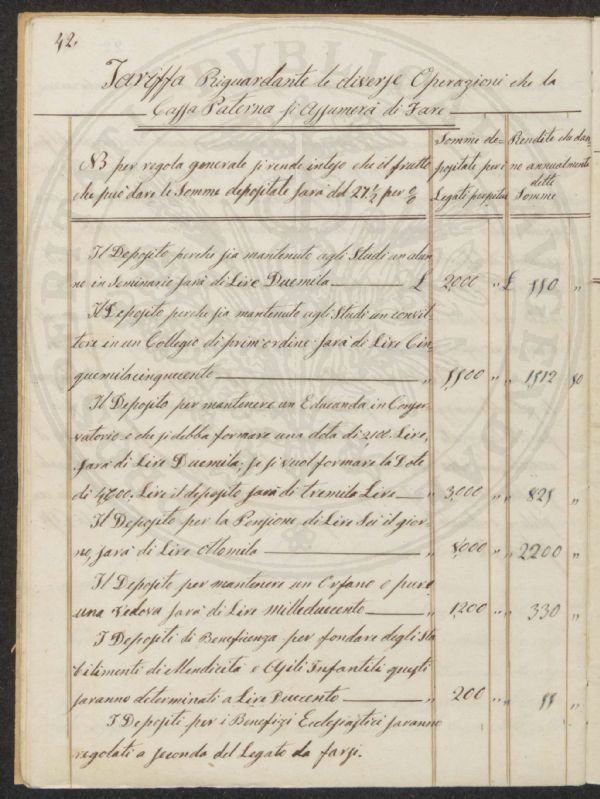 42.
Tariffa Riguardante le diverse Operazioni che la
Cassa Paterna si Assumerà di Fare
NB per regola generale si rende inteso che il frutto
che può dare le Somme depositate sarà del 27 1/2 per %
Somme de=
positate per i
Legati perpetui
Rendite che dan
no annualmente
dette
Somme
Il Deposito perche sia mantenuto agli Studi un alun
no in Seminario sarà di Lire Duemila £ 2000 " £ 550 "
Il Deposito perche sia mantenuto agli Studi un convit
tore in un Collegio di prim'ordine sarà di Lire Cin
quemilacinquecento " 5500 " " 1512 50
Il Deposito per mantenere un Educanda in Conser
vatorio e che si debba formare una dota di 2100. Lire,
sarà di Lire Duemila; se si vuol formare la Dote
di 4200. Lire il deposito sarà di tremila Lire " 3,000 " " 825 "
Il Deposito per la Pensione di Lire Sei il gior
no, sarà di Lire Ottomila " 8000 " " 2200 "
Il Deposito per mantenere un Orfano o pure
una Vedova sarà di Lire milleduecento " 1200 " " 330 "
I Depositi di Beneficenza per fondare degli sta
bilimenti di Mendicità e Asili Infantili questi
saranno determinati a Lire Duecento " 200 " " 55 "
I Depositi per i Benefizi Ecclesiastici saranno
regolati a seconda del Legato da farsi.